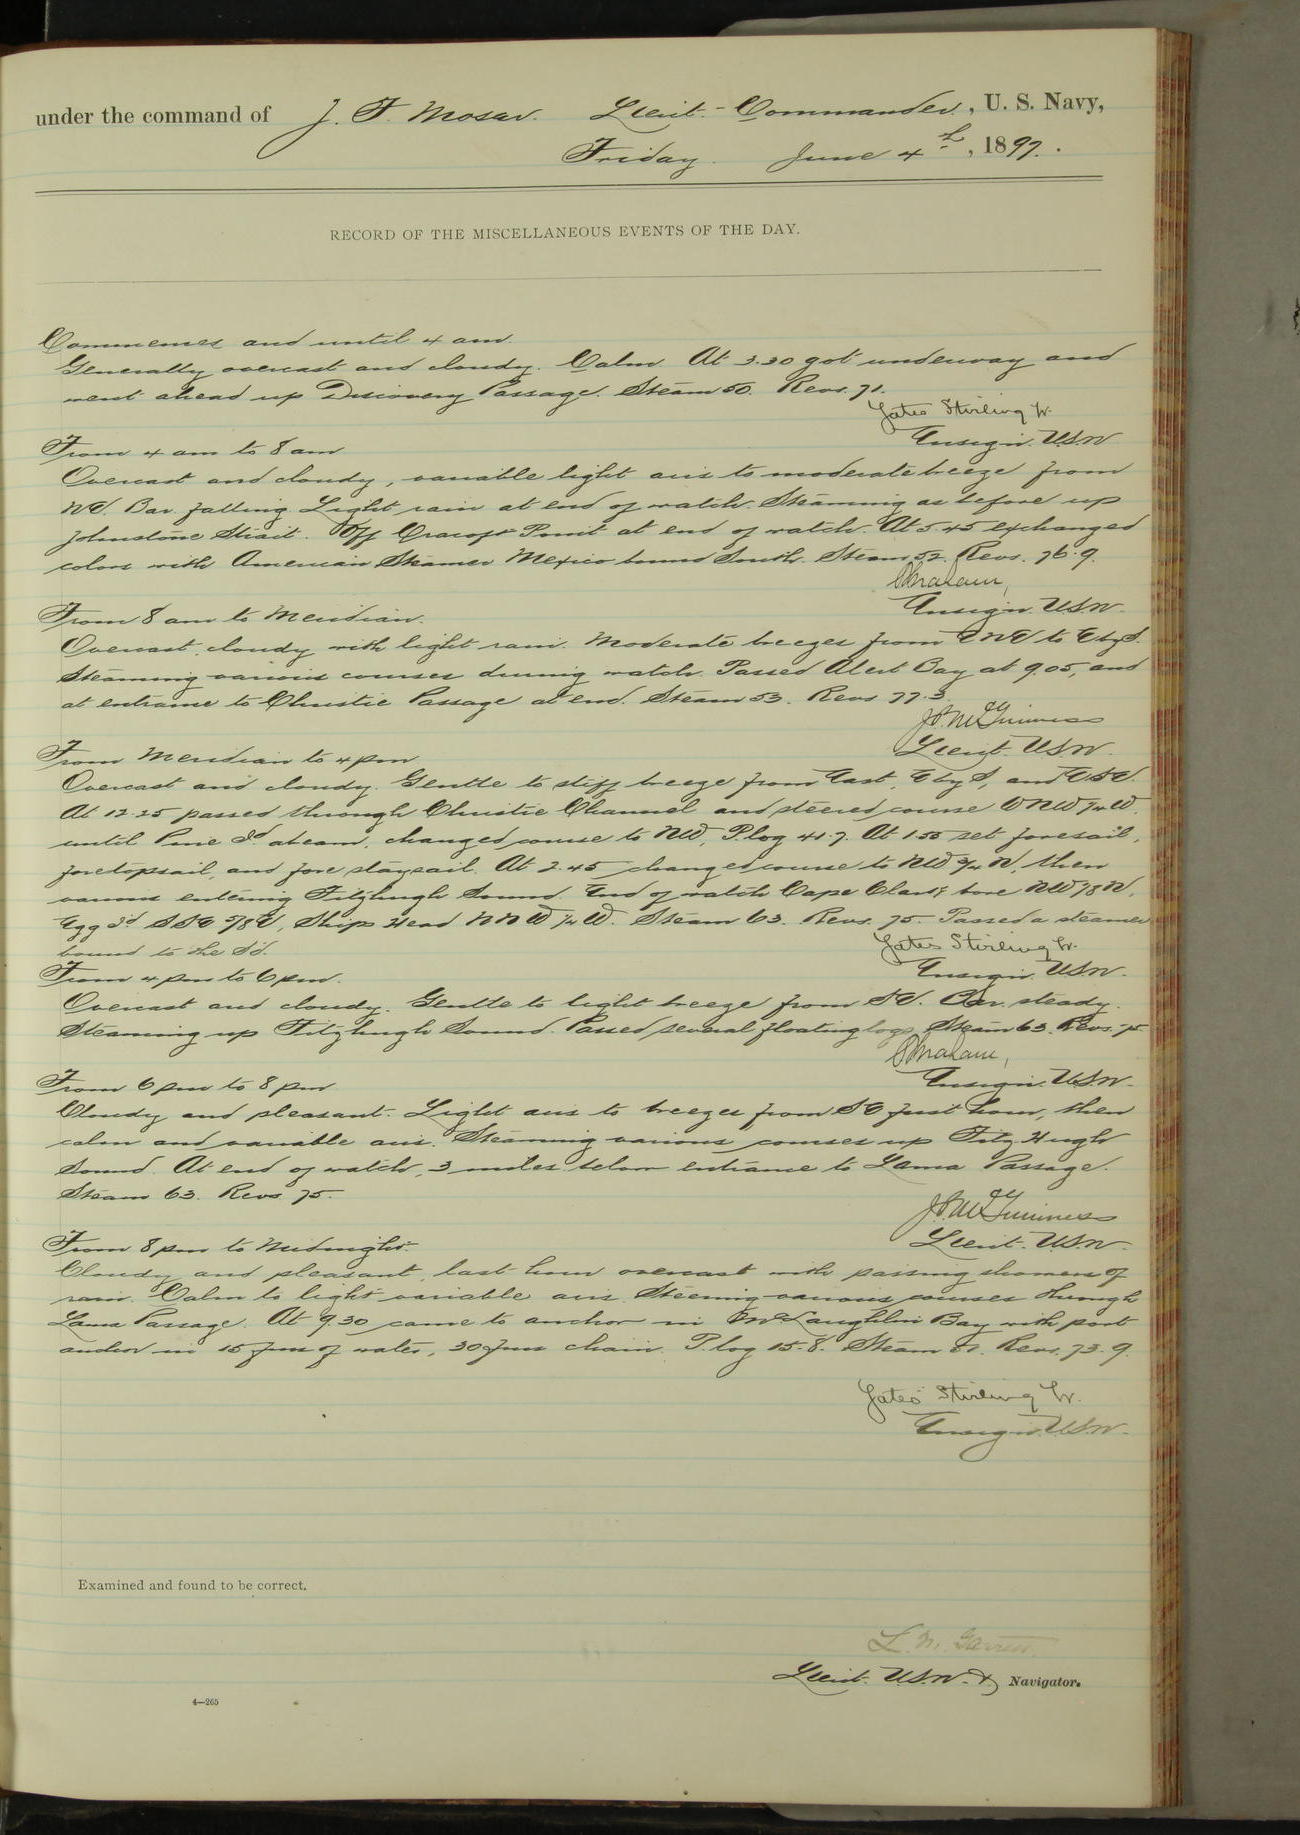 under the command of J. F. Moser. Lieut.-Commander, U. S. Navy,
Friday. June 4th, 1897.
RECORD OF THE MISCELLANEOUS EVENTS OF THE DAY.
Commences and until 4 am.
Generally overcast and cloudy. Calm. At 3.30 got underway and
went ahead up Discovery Passage. Steam 50. Revs. 71.
Yates Stirling Jr.
Ensign. U.S.N
From 4 am to 8 am
Overcast and cloudy, variable light airs to moderate breeze from
Bar. falling. Light rain at end of watch. Steaming as before up
Johnstone Strait. Off Cracoft Point at end of watch. At 5.45 exchanged
colors with American Steamer Mexico bound South. Steam 52. Revs. 76.9.
Ensign. U.S.N.
From 8 am to Meridian.
Overcast, cloudy with light rain. Moderate breezes from ENE to E by S.
Steaming various courses during watch. Passed Alert Bay at 9.05, and
at entrance to Christie Passage at end. Steam 53. Revs 77.3
J.P. McGuinness
Lieut. U.S.N.
From Meridian to 4 pm
Overcast and cloudy. Gentle to stiff breeze from East, E by S, and ESE.
At 12.25 passed through Christie Channel and steered course WNW 1/4 W.
until Pine Id abeam, changed course to NW, P. log 41.7. At 1.55 set foresail,
foretopsail, and fore staysail. At 2.45 changed course to NW 3/4 N, then
various entering Fitzhugh Sound. End of watch Cape Clark bore NW 7/8 N,
Egg Id SSE 7/8 E, Ships Head NNW 1/4 W. Steam 63. Revs. 75. Passed a steamer
bound to the Sd.
Yates Stirling Jr.
Ensign. U.S.N.
From 4 pm to 6 pm.
Overcast and cloudy. Gentle to light breeze from SE. Bar. steady.
Steaming up Fitzhugh Sound. Passed several floating logs. Steam 63. Revs. 75
Ensign. U.S.N.
From 6 pm to 8 pm
Cloudy and pleasant. Light airs to breezes from SE first hour, then
calm and variable airs. Steaming various courses up Fitz Hugh
Sound. At end of watch, 3 miles below entrance to Lama Passage.
Steam 63. Revs. 75.
J.P. McGuinness
Lieut. U.S.N.
From 8 pm to Midnight.
Cloudy and pleasant, last hour overcast with passing showers of
rain. Calm to light variable airs. Steaming various courses through
Lama Passage. At 9.30 came to anchor in McLaughlin Bay with port
anchor in 15 fms of water, 30 fms chain. P. log 15.8. Steam Revs. 73.9.
Yates Stirling Jr.
Ensign. U.S.N.
Examined and found to be correct.
L. M. Garrett
Lieut. U.S.N. & Navigator.
4—265